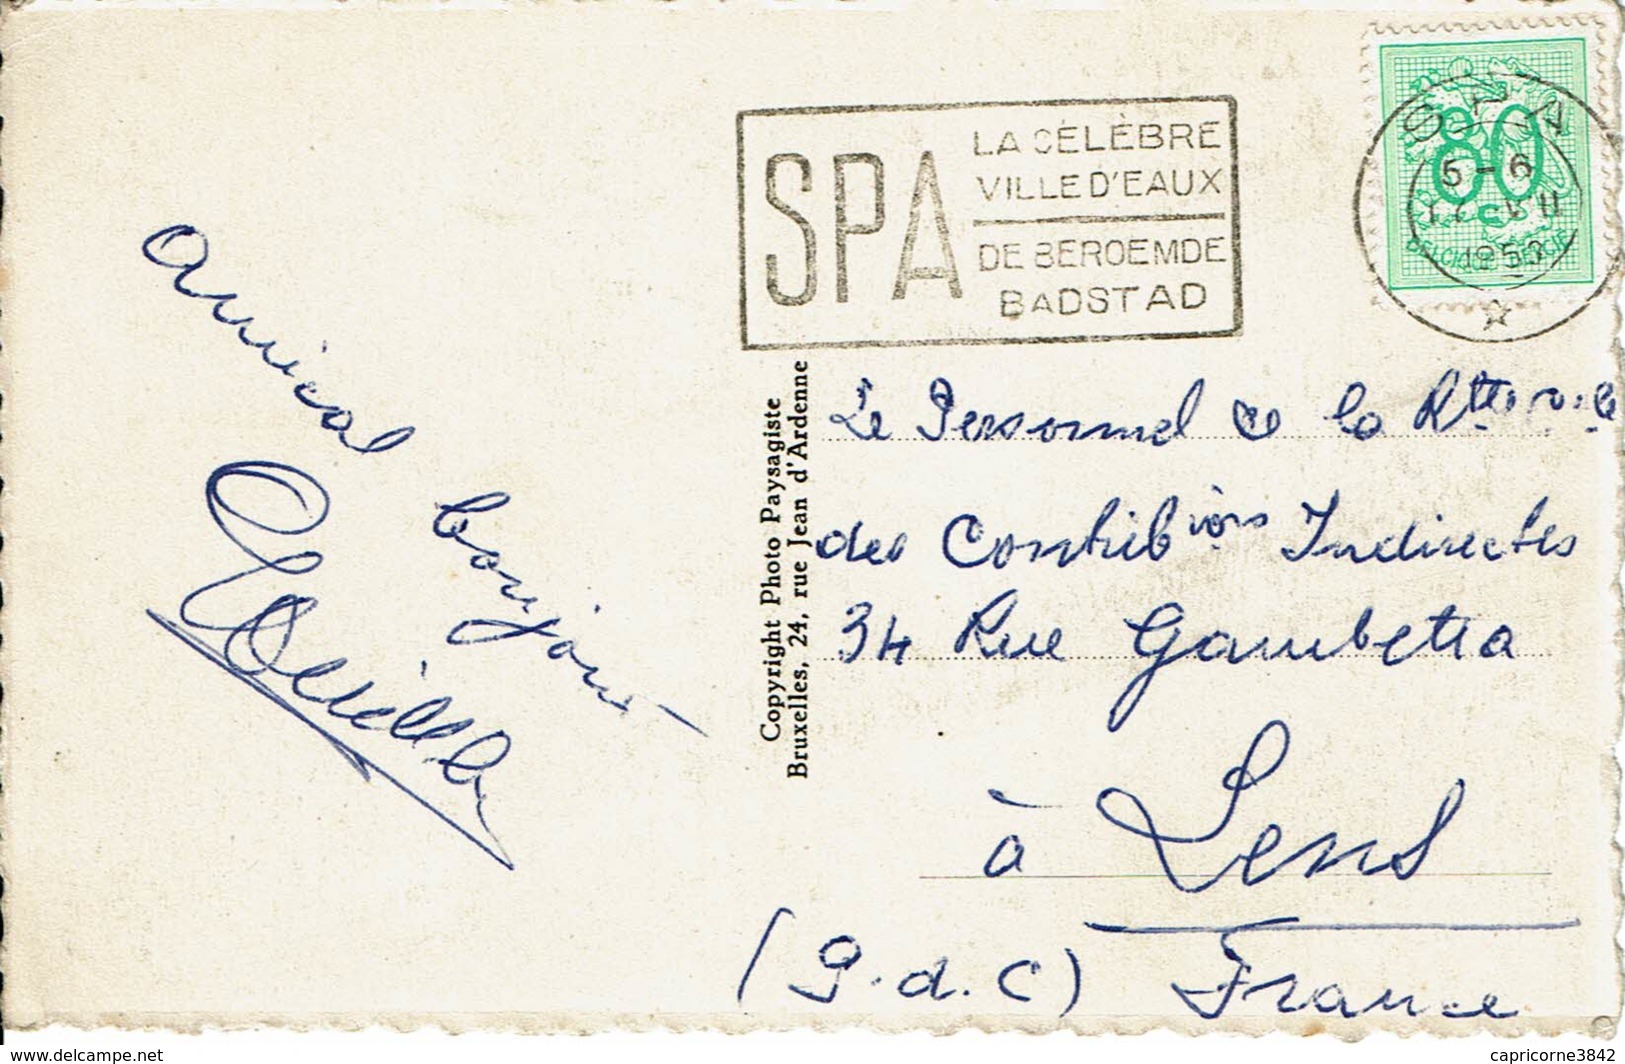 SPA
LA CÉLÈBRE
VILLE D'EAUX
DE BEROEMDE
BADSTAD
SPA
5-6
80
BELGIQUE-BELGIE
Amical
bonjour
Copyright Photo Paysagiste
Bruxelles, 24, rue Jean d'Ardenne
Le Personnel de la Rtte
des Contribions Indirectes
34 Rue Gambetta
à Lens
(P.d.C) France
delcampe.net
capricorne3842